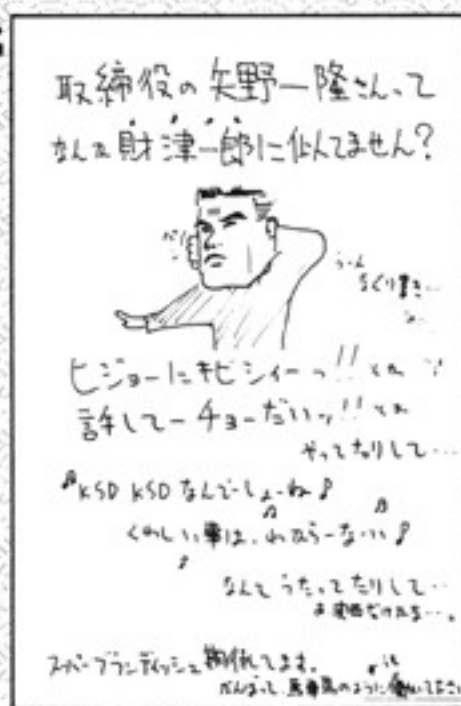 取締役の矢野一隆さんって
なんか財津一郎に似てません?
うーん
なぐり書き…
ヒジョーにキビシィーっ!!とか
許してーチョーだいッ!!とか
やってたりして…
♪KSD KSD なんでーしょーね♪
くわしい事は、わからーない♪
なんてうたってたりして…
スーパーブランディッシュ期待してます。
がんばって、馬車馬のように働いて下さい